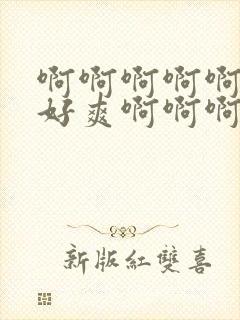 啊啊啊啊啊
好爽啊啊啊
新版紅雙喜